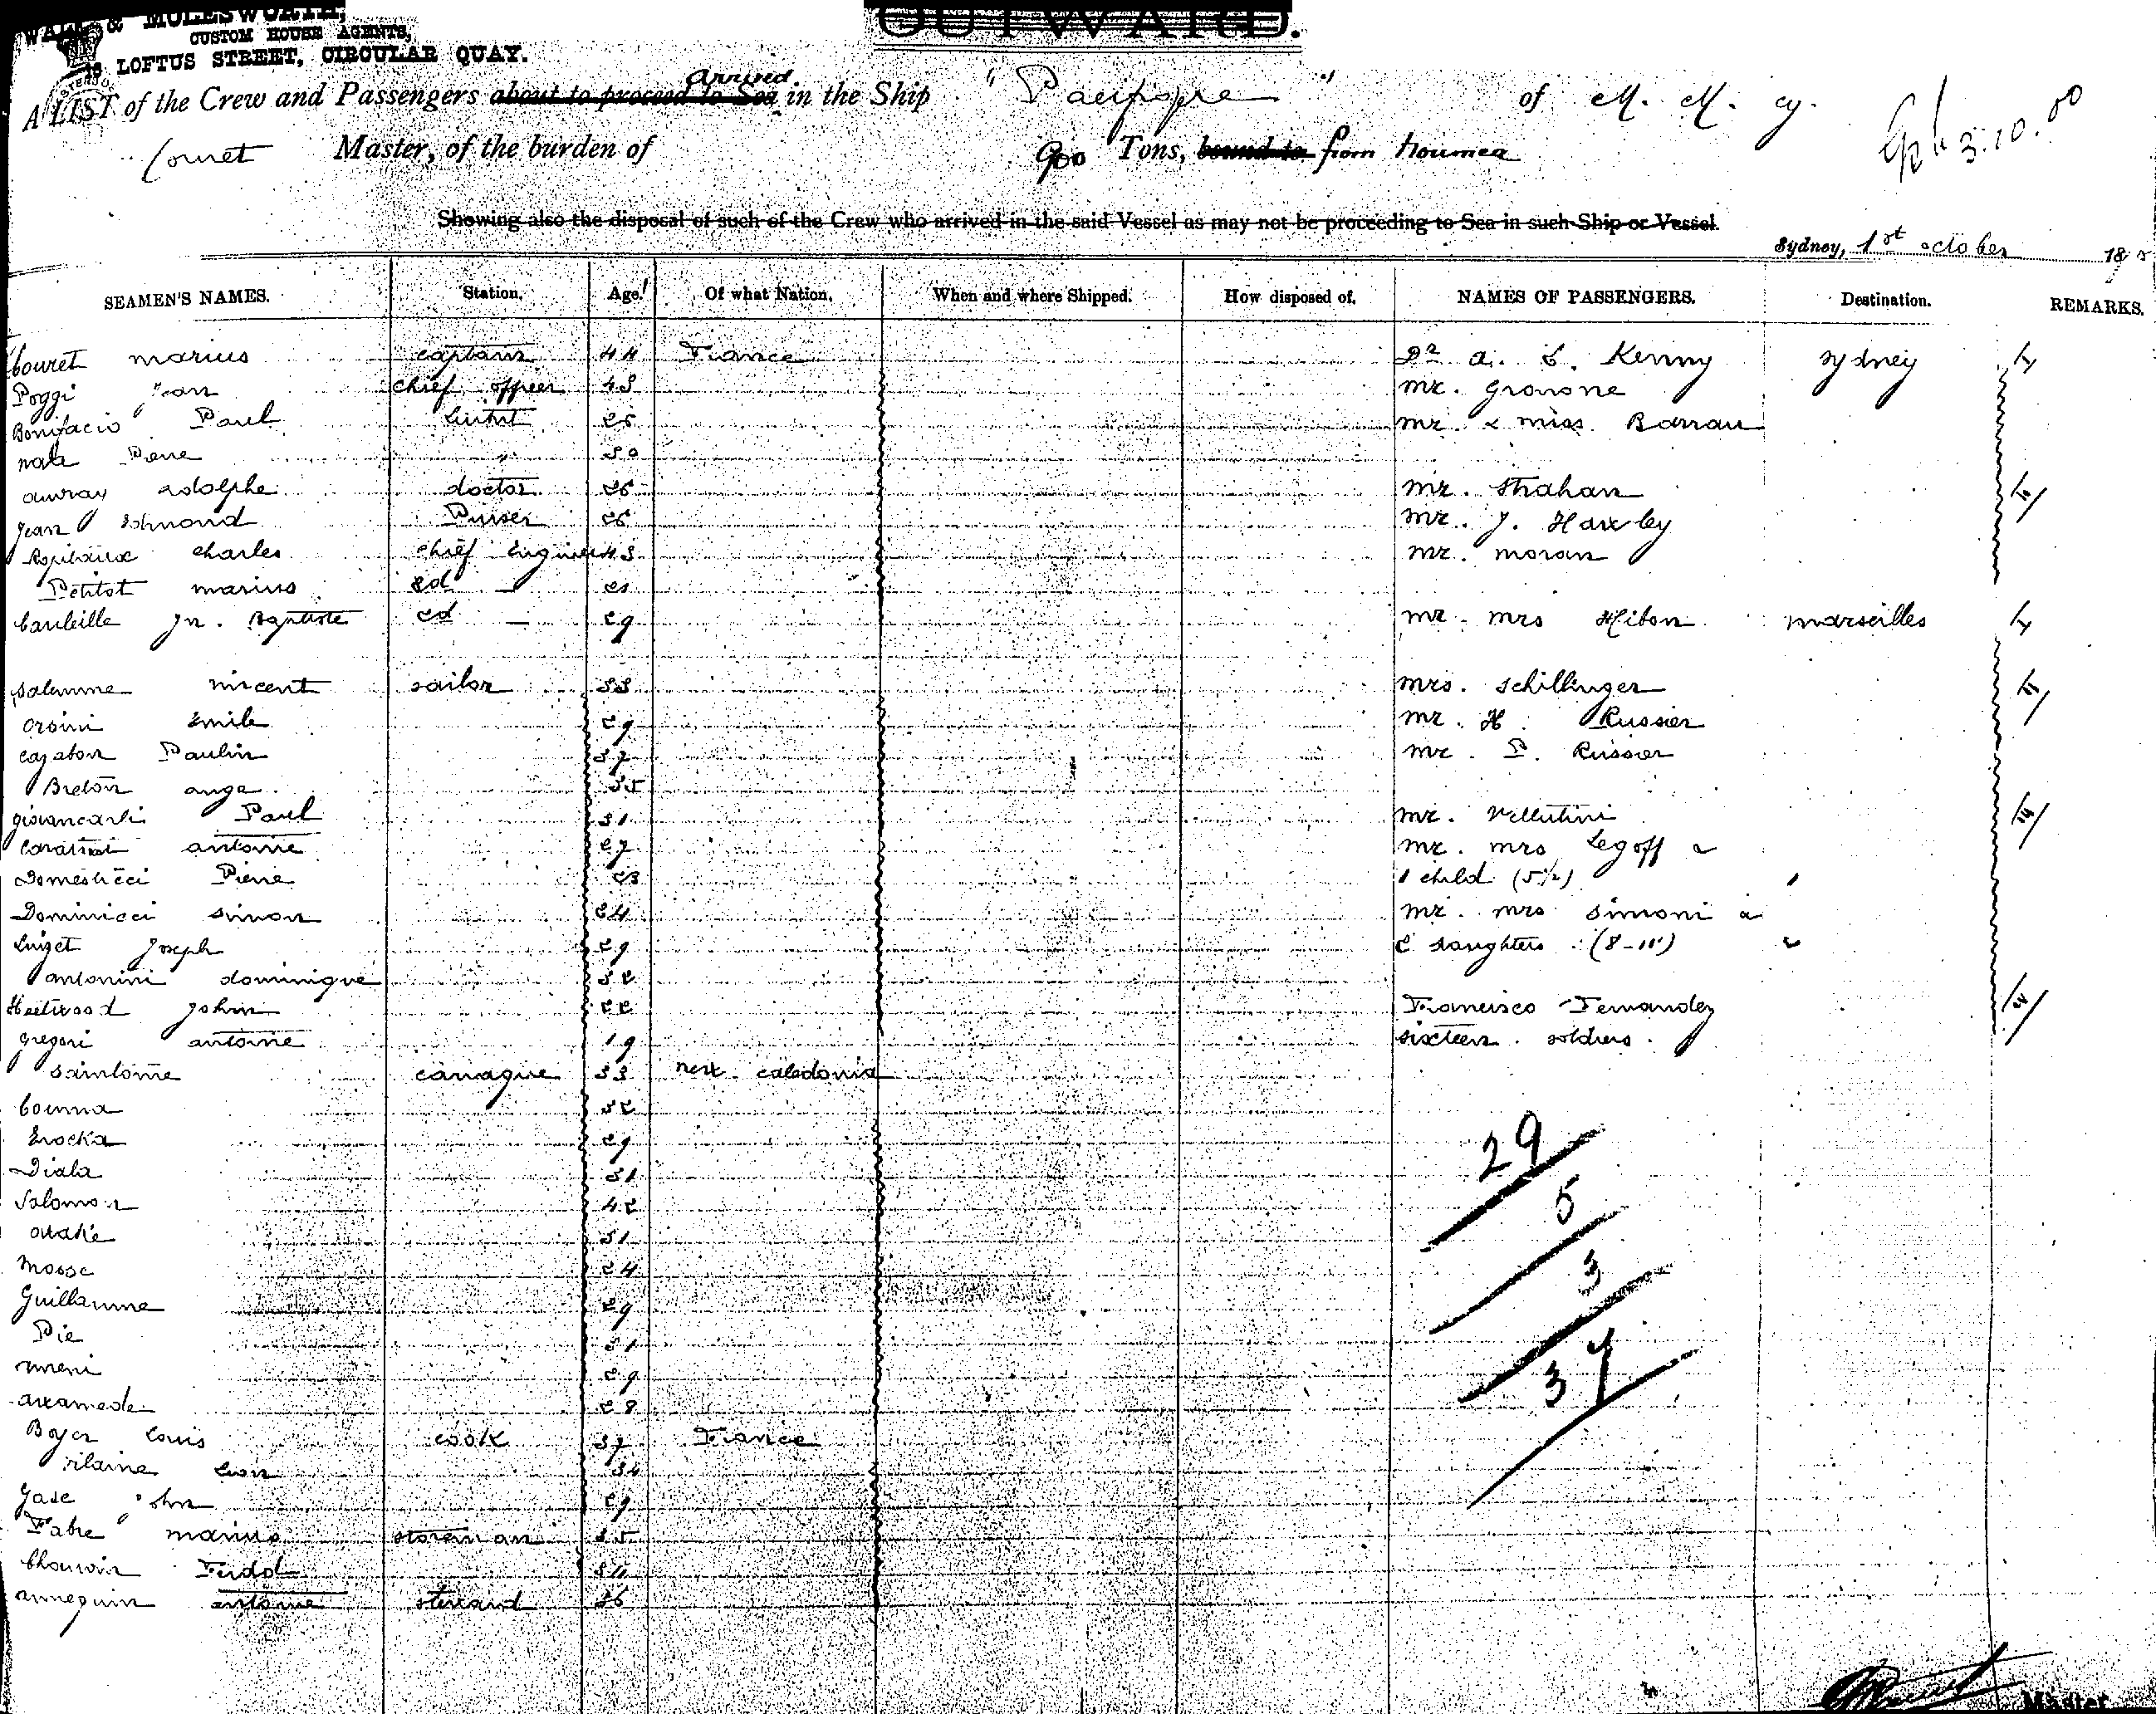 WALL & MOLESWORTH,
CUSTOM HOUSE AGENTS,
LOFTUS STREET, CIRCULAR QUAY.
OUTWARD.
A LIST of the Crew and Passengers about to proceed to Sea arrived in the Ship "Pacifique" of M. M. cy.
Couret Master, of the burden of 900 Tons, bound to from Noumea
3.10.00
Showing also the disposal of such of the Crew who arrived in the said Vessel as may not be proceeding to Sea in such Ship or Vessel.
Sydney, 1st october 18
SEAMEN'S NAMES. Station. Age. Of what Nation. When and where Shipped. How disposed of. NAMES OF PASSENGERS. Destination. REMARKS.
Couret marius captain 44 France Dr a. Kenny sydney
Poggi Jean chief officer 43 mr. Gronone
Bonifacio Paul Lieutnt 26 mr. & miss Barrau
Pierre 30
auvray adolphe doctor 26 mr. Strahan
Jean Edmond Purser 26 mr. J. Hawley
Charles chief Engineer 43 mr. moran
Petitot marius 2d
Jn. Baptiste 2d 29 mr. mrs Hibon marseilles
vincent sailor 33 mrs. Schillinger
orsini Emile 29 mr. H. Russier
Paulin 37 mr. P. Russier
Breton ange 35
giovancarli Paul 31 mr. Vellutini
antoine 27 mr. mrs Legoff &
Pierre 23 1 child (5 1/2)
Dominicci simon 24 mr. mrs simoni &
Luizet Joseph 29 2 daughters (8-11)
antonini dominique 32
John 22 Francisco Fernandez
gregori antoine 19 sixteen soldiers.
saintome canaque 33 new caledonia
Counna 32
Erocka 29
Diala 31
Salomon 42
31
Mosse 24
Guillaume 29
Pie 31
29
28
Boyer Louis cook 37 France
Leon 34
John 29
Fabre marius storeman 35
Chauvin Ferdd 34
annequin antoine steward 36
29
5
3
37
Master